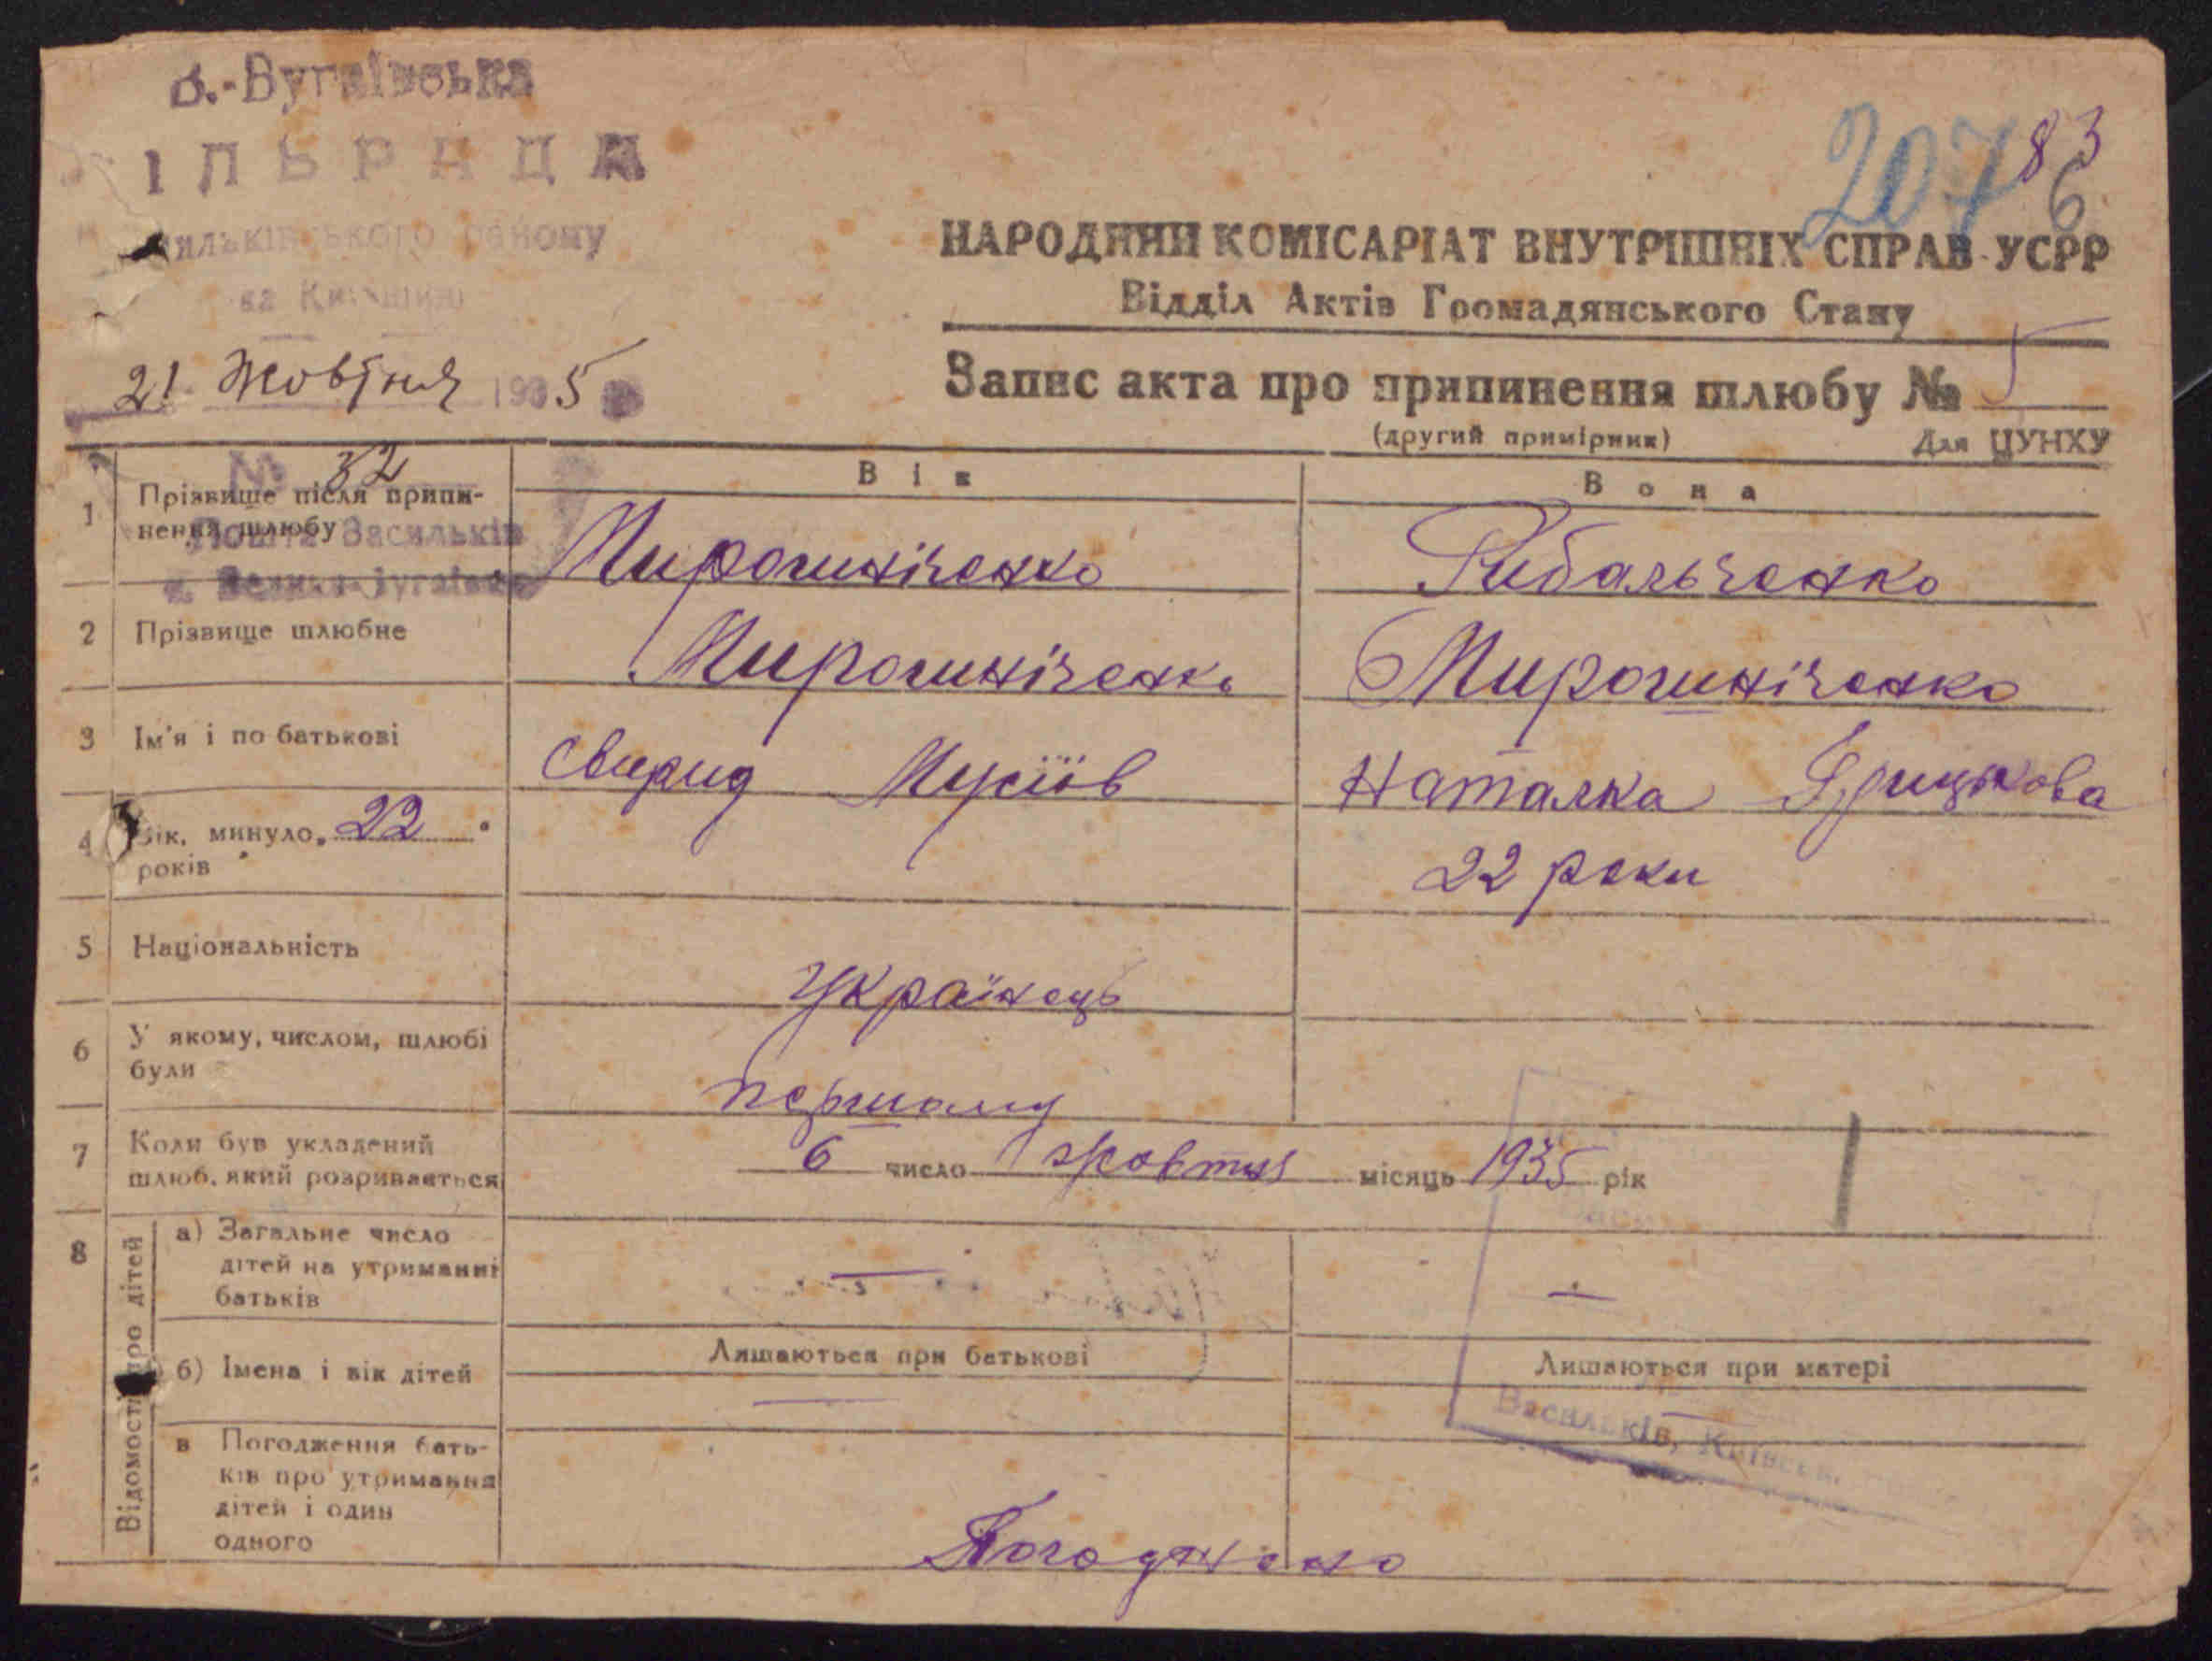 В.-Бугаївська
СІЛЬРАДА
Васильківського району
на Київщині
21 Жовтня 1935
№ 32
Пошта Васильків
с. Велика-Бугаївка
207 83
6
НАРОДНИЙ КОМІСАРІАТ ВНУТРІШНІХ СПРАВ УСРР
Відділ Актів Громадянського Стану
Запис акта про припинення шлюбу № 5
(другий примірник) Для ЦУНХУ
Він Вона
1 Прізвище після припинення шлюбу Мирошніченко Рибальченко
2 Прізвище шлюбне Мирошніченко Мирошніченко
3 Ім'я і по батькові Свирид Мусіїв Наталка Грицькова
4 Вік, минуло 22 років 22 роки
5 Національність Українець
6 У якому, числом, шлюбі були першому
7 Коли був укладений шлюб, який розривається 6 число жовтня місяць 1935 рік
8 Відомості про дітей
а) Загальне число дітей на утриманні батьків — —
б) Імена і вік дітей Лишаються при батькові — Лишаються при матері —
Васильків, Київськ.
в Погодження батьків про утримання дітей і один одного Погоджено